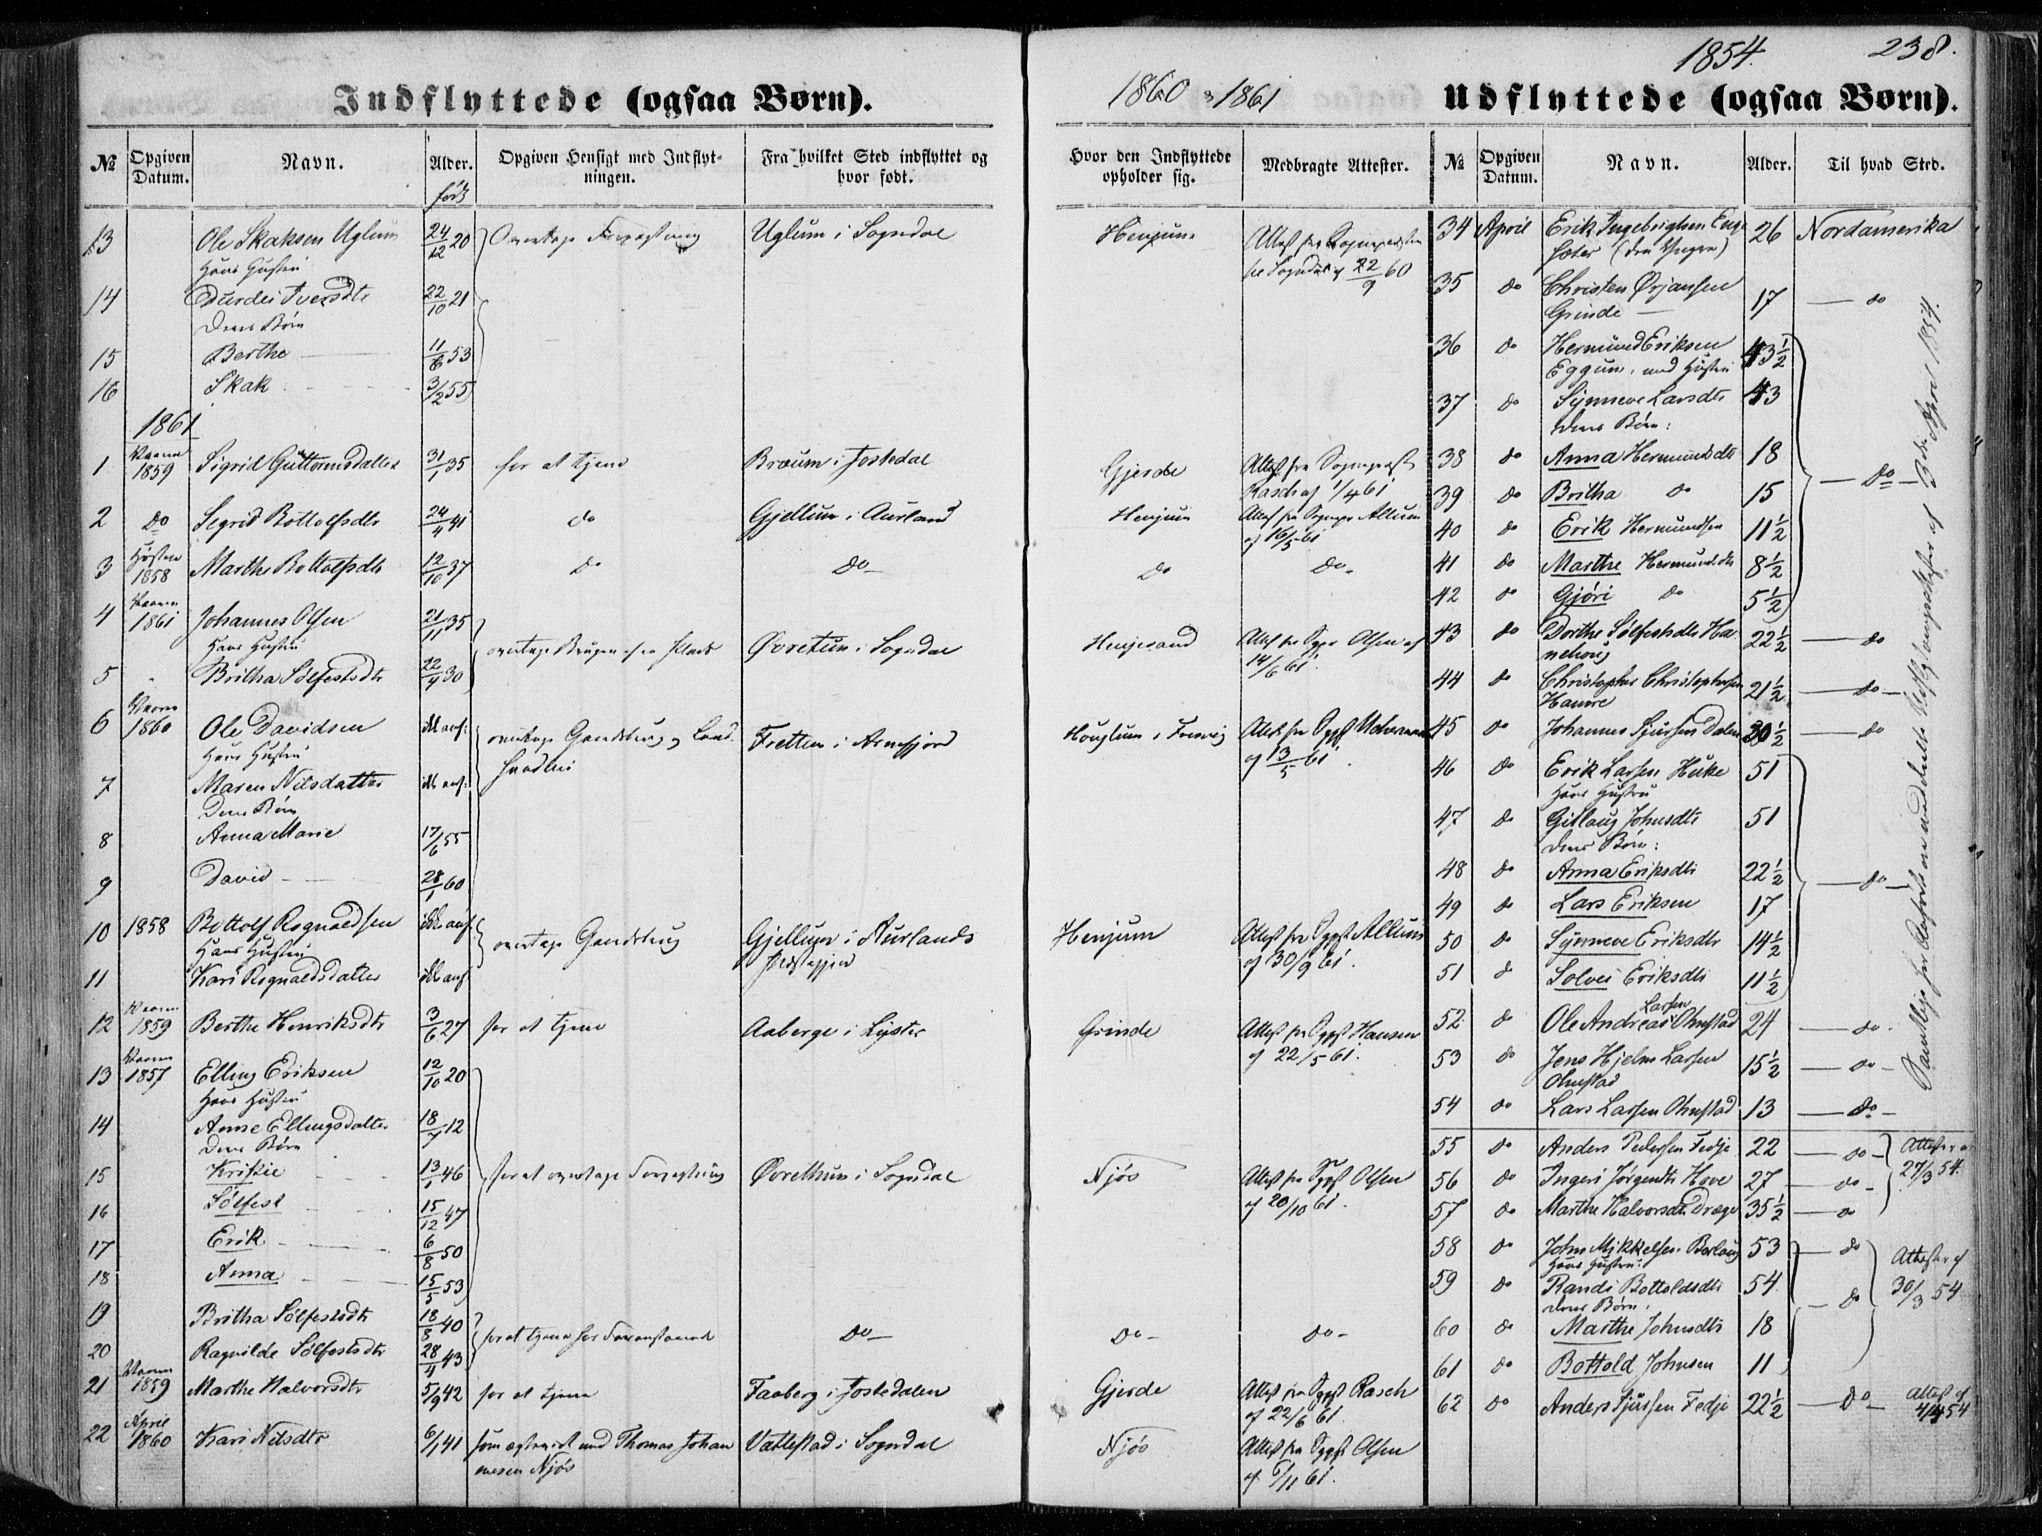 1854. 238.
Indflyttede (ogsaa Børn). 1860 & 1861
№ Opgiven Datum. Navn. Alder. Opgiven Hensigt med Indflytningen. Fra hvilket Sted indflyttet og hvor født. Hvor den Indflyttede opholder sig. Medbragte Attester.
født
13 Ole Skaksen Uglum 24/12 20 Overtage Uglum i Sogndal Henjum Attest fra Sognepræsten
Hans Hustru til Sogndal af 22/9 60
14 Durdei Iversdtr 22/10 21
Deres Børn
15 Berthe 11/6 53
16 Skak 3/2 55
1861
1 Vaaren 1859 Sigrid Guttormsdatter 31/1 35 for at tjene Bræum i Jostedal Gjerde Attest fra Sognepræst
Rasch af 1/4 61
2 do Sigrid Bottolfsdtr 24/4 41 do Gjellum i Aurland Henjum Attest fra Sognepr Allum
af 16/5 61
3 Høsten 1858 Marthe Bottolfsdtr 12/10 37 do do do do
4 Vaaren 1861 Johannes Olsen 21/11 35 overtage Brugen af en Plads Øvretun i Sogndal Henjesand Attest fra Sgpr Olsen af
Hans Hustru 14/6 61
5 Britha Sølfestsdtr 22/4 30
6 Vaaren 1860 Ole Davidsen ikke anf: overtage Gaardsbrug og Land- Fretten i Arnefjord Houglum i Fresvig Attest fra Sgpst
Hans Hustru handleri af 13/5 61
7 Maren Nilsdatter ikke anf:
Deres Børn
8 Anna Marie 17/6 55
9 David 28/1 60
10 1858 Bottolf Rognaldsen ikke anf. overtage Gaardsbrug Gjellum i Aurlands Henjum Attest fra Sgpst Allum
Hans Hustru Præstegjeld af 30/9 61.
11 Kari Rognaldsdatter ikke anf
12 Vaaren 1859 Berthe Henriksdtr 3/6 27 for at tjene Aaberge i Lyster Grinde Attest fra Sgpst Hansen
af 22/5 61.
13 Vaaren 1857 Elling Eriksen 12/10 20
Hans Hustru
14 Anne Ellingsdatter 18/7 12
Deres Børn
15 Kristie 13/1 46 for at overtage Øvrethun i Sogndal Njøs Attest fra Sgpst Olsen
16 Sølfest 15/12 47 af 20/10 61.
17 Erik 6/8 50
18 Anna 15/5 53
19 Britha Sølfestsdtr 18/8 40 for at tjene hos Foranstaaende Do Do Do
20 Ragnilde Sølfestsdtr 28/4 43
21 Vaaren 1859 Marthe Halvorsdtr 5/9 42 for at tjene Faaberg i Jostedalen Gjerde Attest fra Sgpst Rasch
af 22/6 61.
22 April 1860 Kari Nilsdtr 6/1 41 som ægteviet med Thomas Johan- Vattestad i Sogndal Njøs Attest fra Sgpst Olsen
nesen Njøs af 5/11 61.
Udflyttede (ogsaa Børn).
№ Opgiven Datum. Navn. Alder. Til hvad Sted.
34 April Erik Ingebrigtsen Enge- 26 Nordamerika
(den Yngre)
35 do Christen Ørjansen 17 do
Grinde
36 do Hermund Eriksen 43½
Eggum, med Hustru
37 do Synneve Larsdtr 43
Deres Børn:
38 do Anna Hermundsdtr 18 do
39 do Britha do 15
40 do Erik Hermundsen 11½
41 do Marthe Hermundsdtr 8½
42 do Gjøri do 5½
43 do Dorthe Sølfestsdtr Ham- 22½ do
nehoug
44 do Christopher Christophersen 21½ do
Hamre
45 do Johannes Sjursen Dalen 30½ do
46 do Erik Larsen Huke 51
Hans Hustru
47 do Gitlaug Johnsdtr 51
Deres Børn:
48 do Anna Eriksdtr 22½ do
49 do Lars Eriksen 17
50 do Synneve Eriksdtr 14½
51 do Solvei Eriksdtr 11½
52 do Ole Andreas Larsen Ohnstad 24 do
53 do Jens Hjelm Larsen 15½ do
Ohnstad
54 do Lars Larsen Ohnstad 13 do
55 do Anders Pedersen Fedje 22 do Attester af
27/3 54.
56 do Ingeri Jørgensdtr Hove 27 do
57 do Marthe Halvorsdtr Dræge 35½ do
58 do John Mikkelsen Borlaug 53 do Attester af
Hans Hustru: 30/3 54
59 do Randi Bottoldsdtr 54 do
Deres Børn.
60 do Marthe Johnsdtr 18
61 do Bottold Johnsen 11
62 do Anders Sjursen Fedje 22½ do Attest af
4/4 54
3die April 1854.